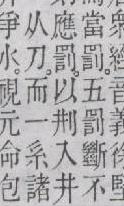 衆經音義徐堅
當罰。五罰斷不
應罰。以刑入井
从刀。而一系諸
爭水。視元命包